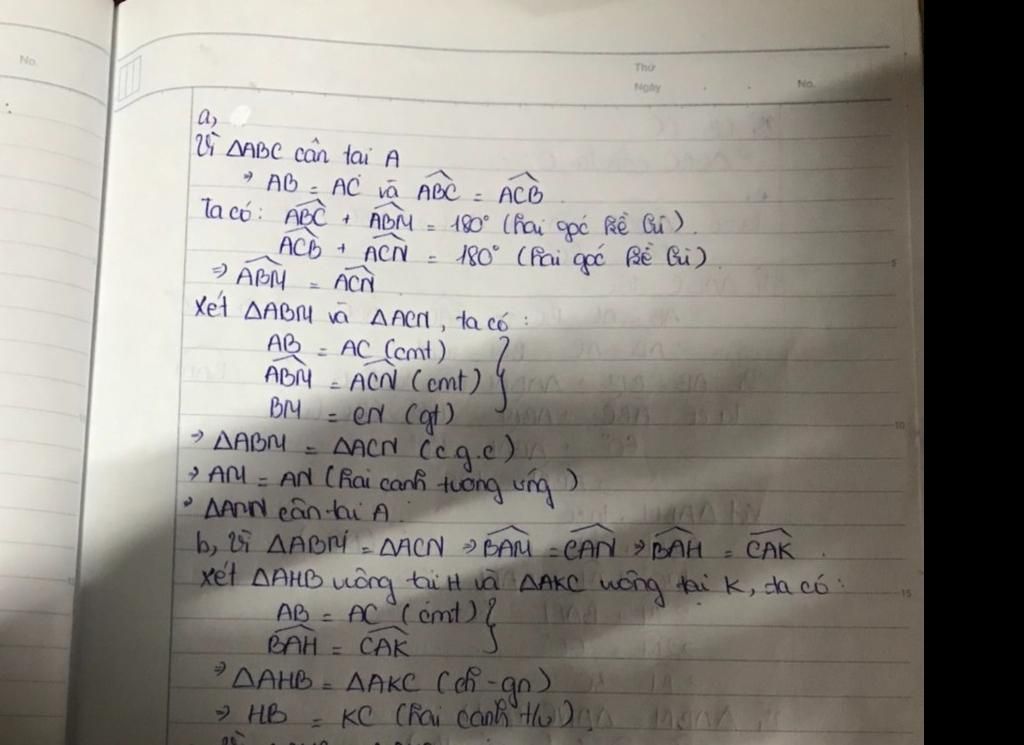 No.
Thứ
Ngày . . No.
a,
Vì ΔABC cân tại A
⇒ AB = AC và \widehat{ABC} = \widehat{ACB}
Ta có: \widehat{ABC} + \widehat{ABM} = 180° (hai góc kề bù).
\widehat{ACB} + \widehat{ACN} = 180° (hai góc kề bù)
⇒ \widehat{ABM} = \widehat{ACN}
Xét ΔABM và ΔACN, ta có:
AB = AC (cmt)
\widehat{ABM} = \widehat{ACN} (cmt)
BM = CN (gt)
⇒ ΔABM = ΔACN (c.g.c)
⇒ AM = AN (hai cạnh tương ứng)
⇒ ΔAMN cân tại A.
b, Vì ΔABM = ΔACN ⇒ \widehat{BAM} = \widehat{CAN} ⇒ \widehat{BAH} = \widehat{CAK}.
Xét ΔAHB vuông tại H và ΔAKC vuông tại K, ta có:
AB = AC (cmt)
\widehat{BAH} = \widehat{CAK}
⇒ ΔAHB = ΔAKC (ch - gn)
⇒ HB = KC (hai cạnh t/ư)
5
10
15